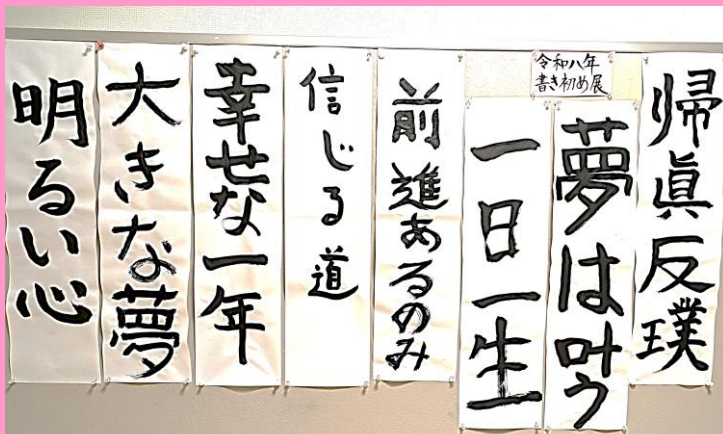 令和八年
書き初め展
帰眞反璞
夢は叶う
一日一生
前進あるのみ
信じる道
幸せな一年
大きな夢
明るい心